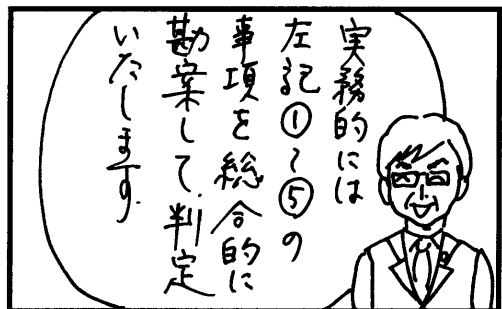 実務的には
左記①~⑤の
事項を総合的に
勘案して、判定
いたします。